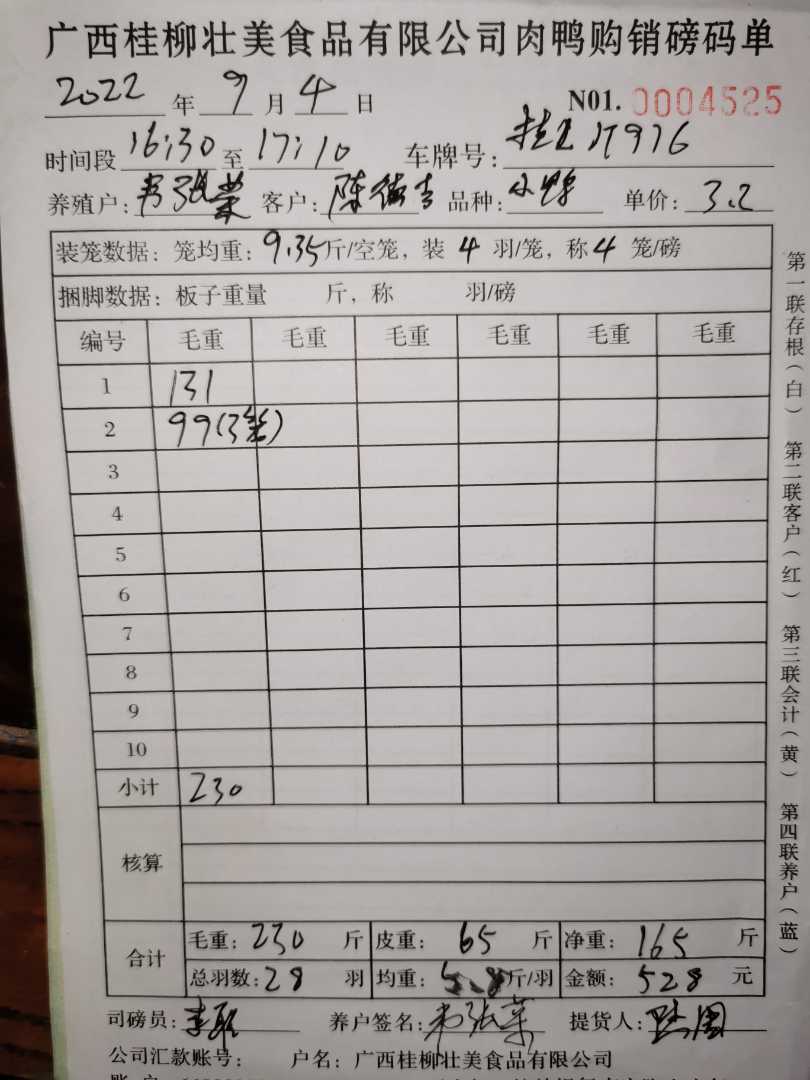 广西桂柳壮美食品有限公司肉鸭购销磅码单
2022 年 9 月 4 日 N01. 0004525
时间段 16:30 至 17:10 车牌号: 976
养殖户: 韦张荣 客户: 陈 品种: 小 单价: 3.2
装笼数据: 笼均重: 9.35 斤/空笼, 装 4 羽/笼, 称 4 笼/磅
捆脚数据: 板子重量 斤, 称 羽/磅
编号 毛重 毛重 毛重 毛重 毛重 毛重
1 131
2 99(3笼)
3
4
5
6
7
8
9
10
小计 230
核算
合计 毛重: 230 斤 皮重: 65 斤 净重: 165 斤
总羽数: 28 羽 均重: 5.8 斤/羽 金额: 528 元
司磅员: 养户签名: 韦张荣 提货人:
公司汇款账号: 户名: 广西桂柳壮美食品有限公司
第一联存根(白) 第二联客户(红) 第三联会计(黄) 第四联养户(蓝)